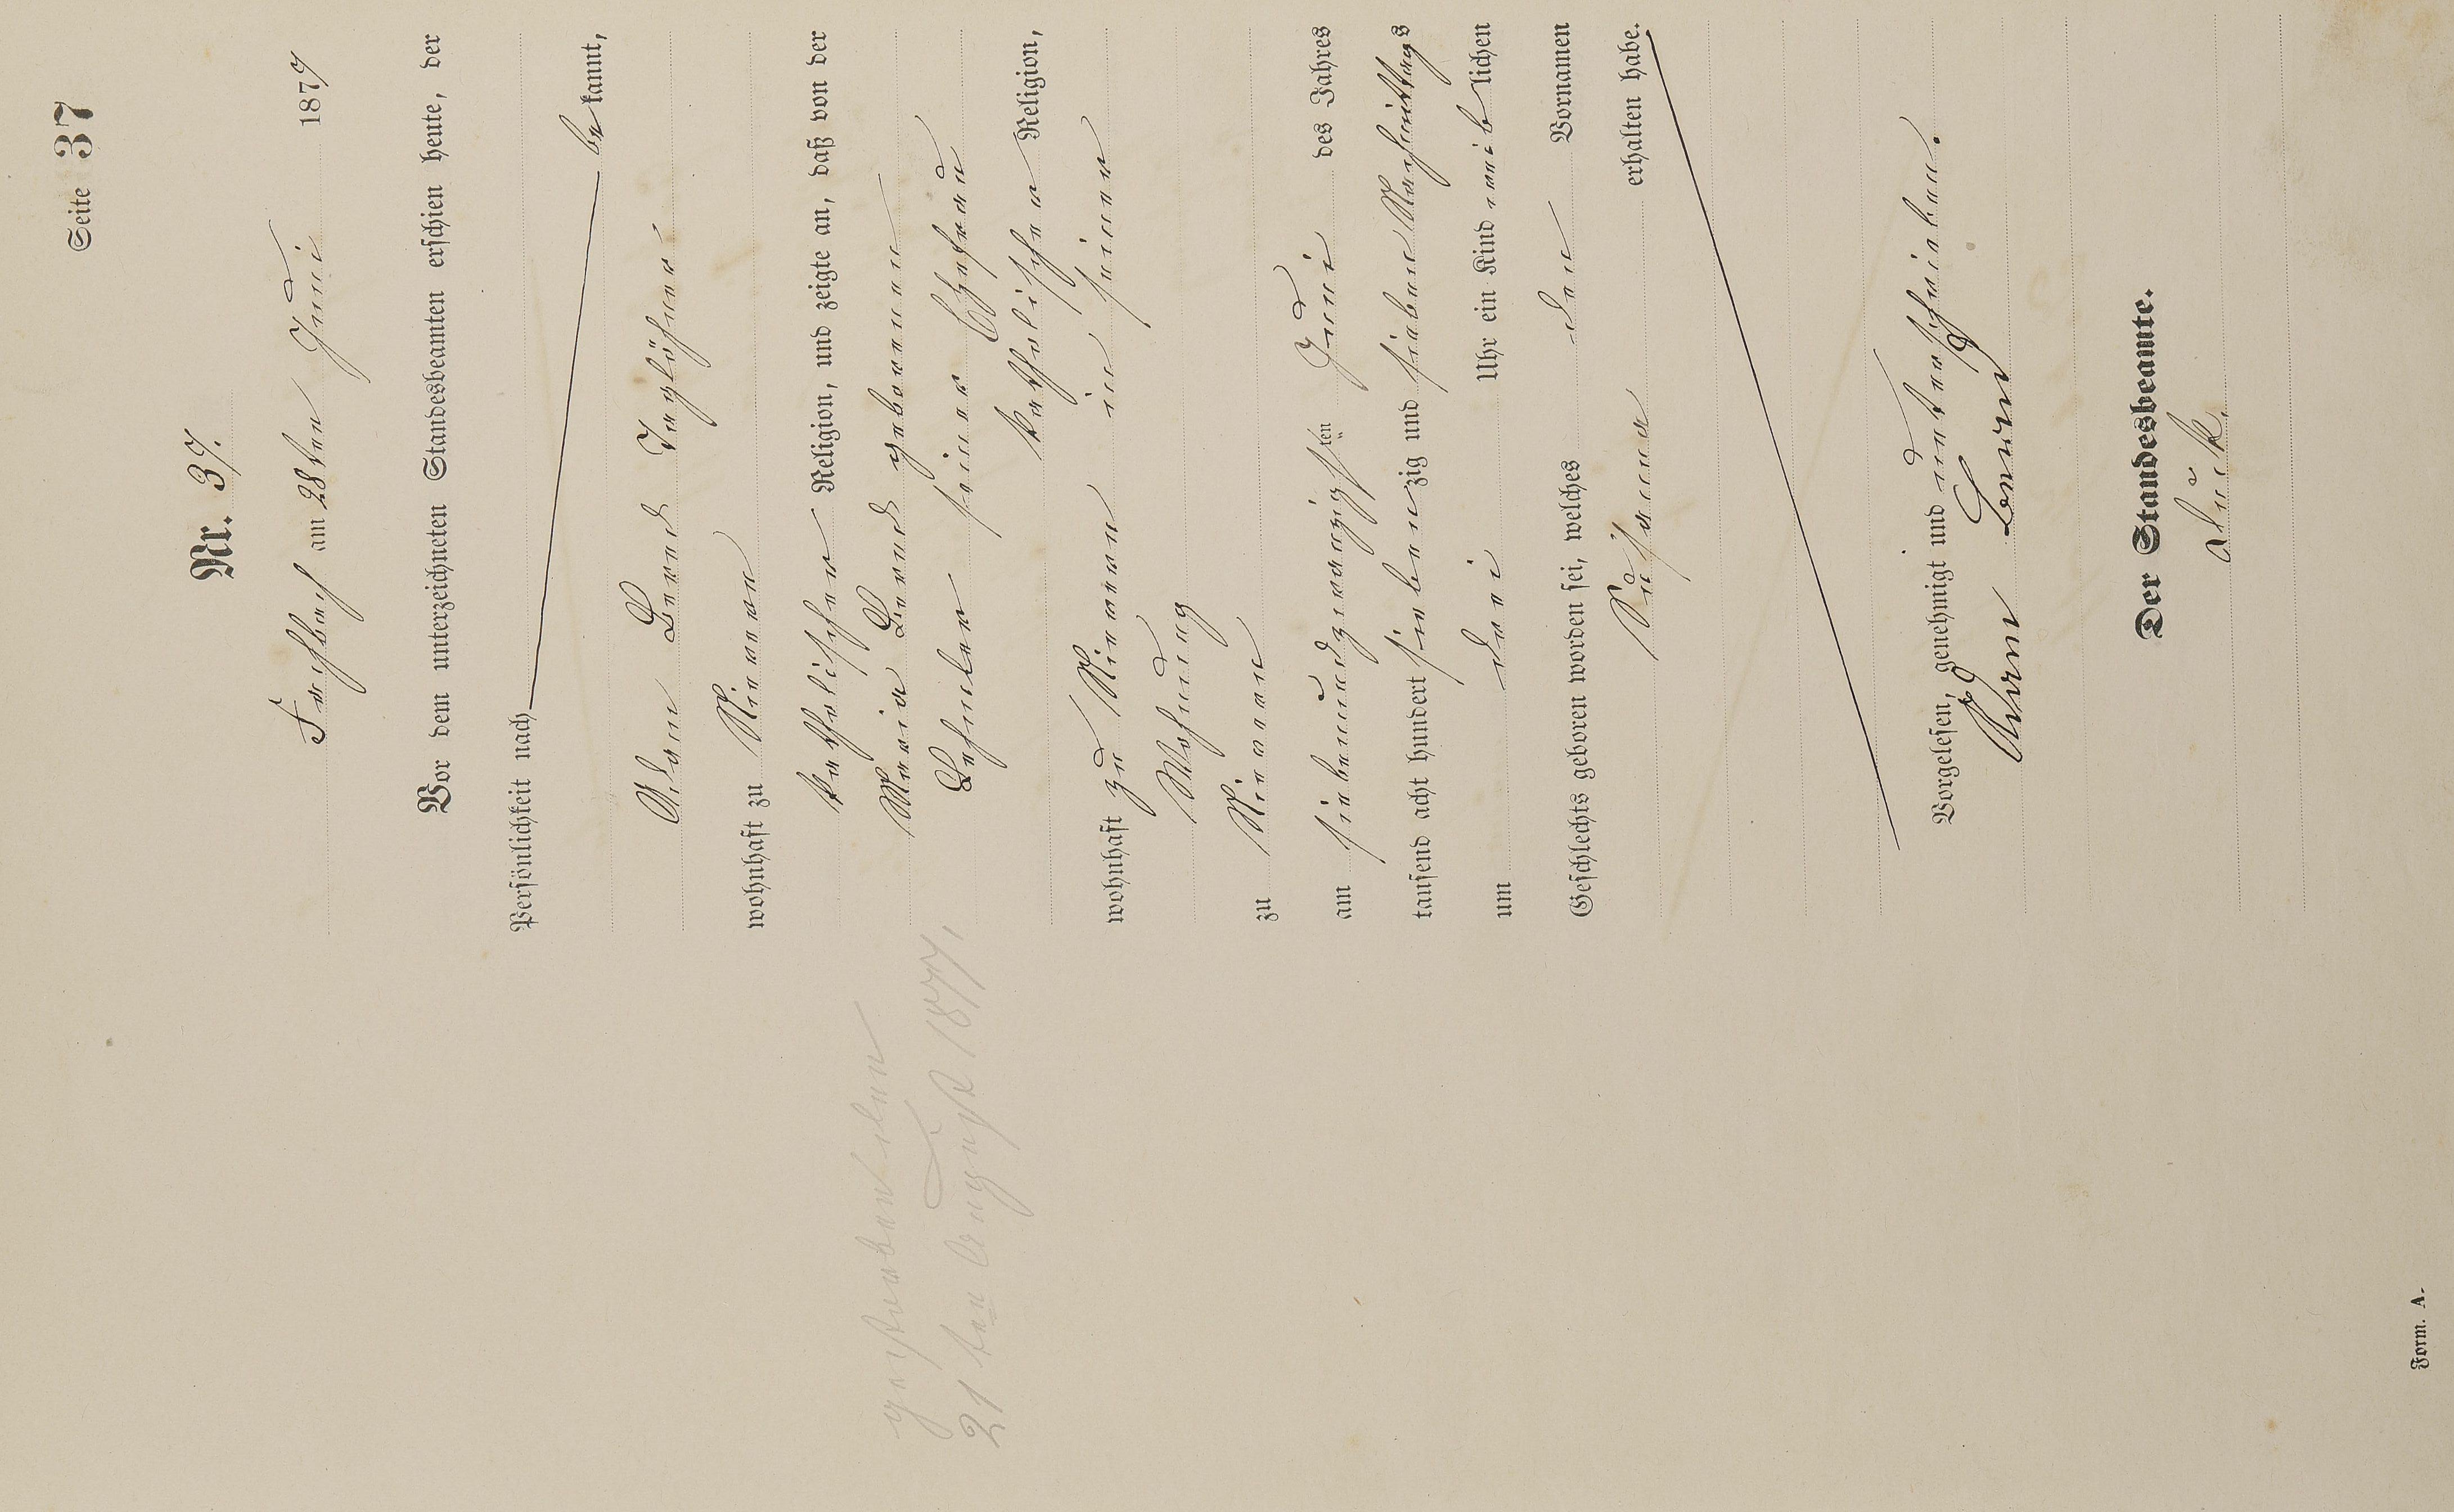 Seite 37
Nr. 37.
Fachbach am 28ten Juni 1877
Vor dem unterzeichneten Standesbeamten erschien heute, der
Persönlichkeit nach
be kannt,
Adam Taglöhner
wohnhaft zu Nievern
katholischer Religion, und zeigte an, daß von der
Maria geborenen
seiner Ehefrau
katholischer Religion,
wohnhaft zu Nievern in seiner
Wohnung
zu Nievern
am siebenundzwanzigsten Juni des Jahres
tausend acht hundert siebenzig und sieben Nachmittags
um drei Uhr ein Kind weiblichen
Geschlechts geboren worden sei, welches den Vornamen
Susanna erhalten habe.
Vorgelesen, genehmigt und unterschrieben.
Der Standesbeamte.
gestorben den
21ten August 1877,
Form. A.